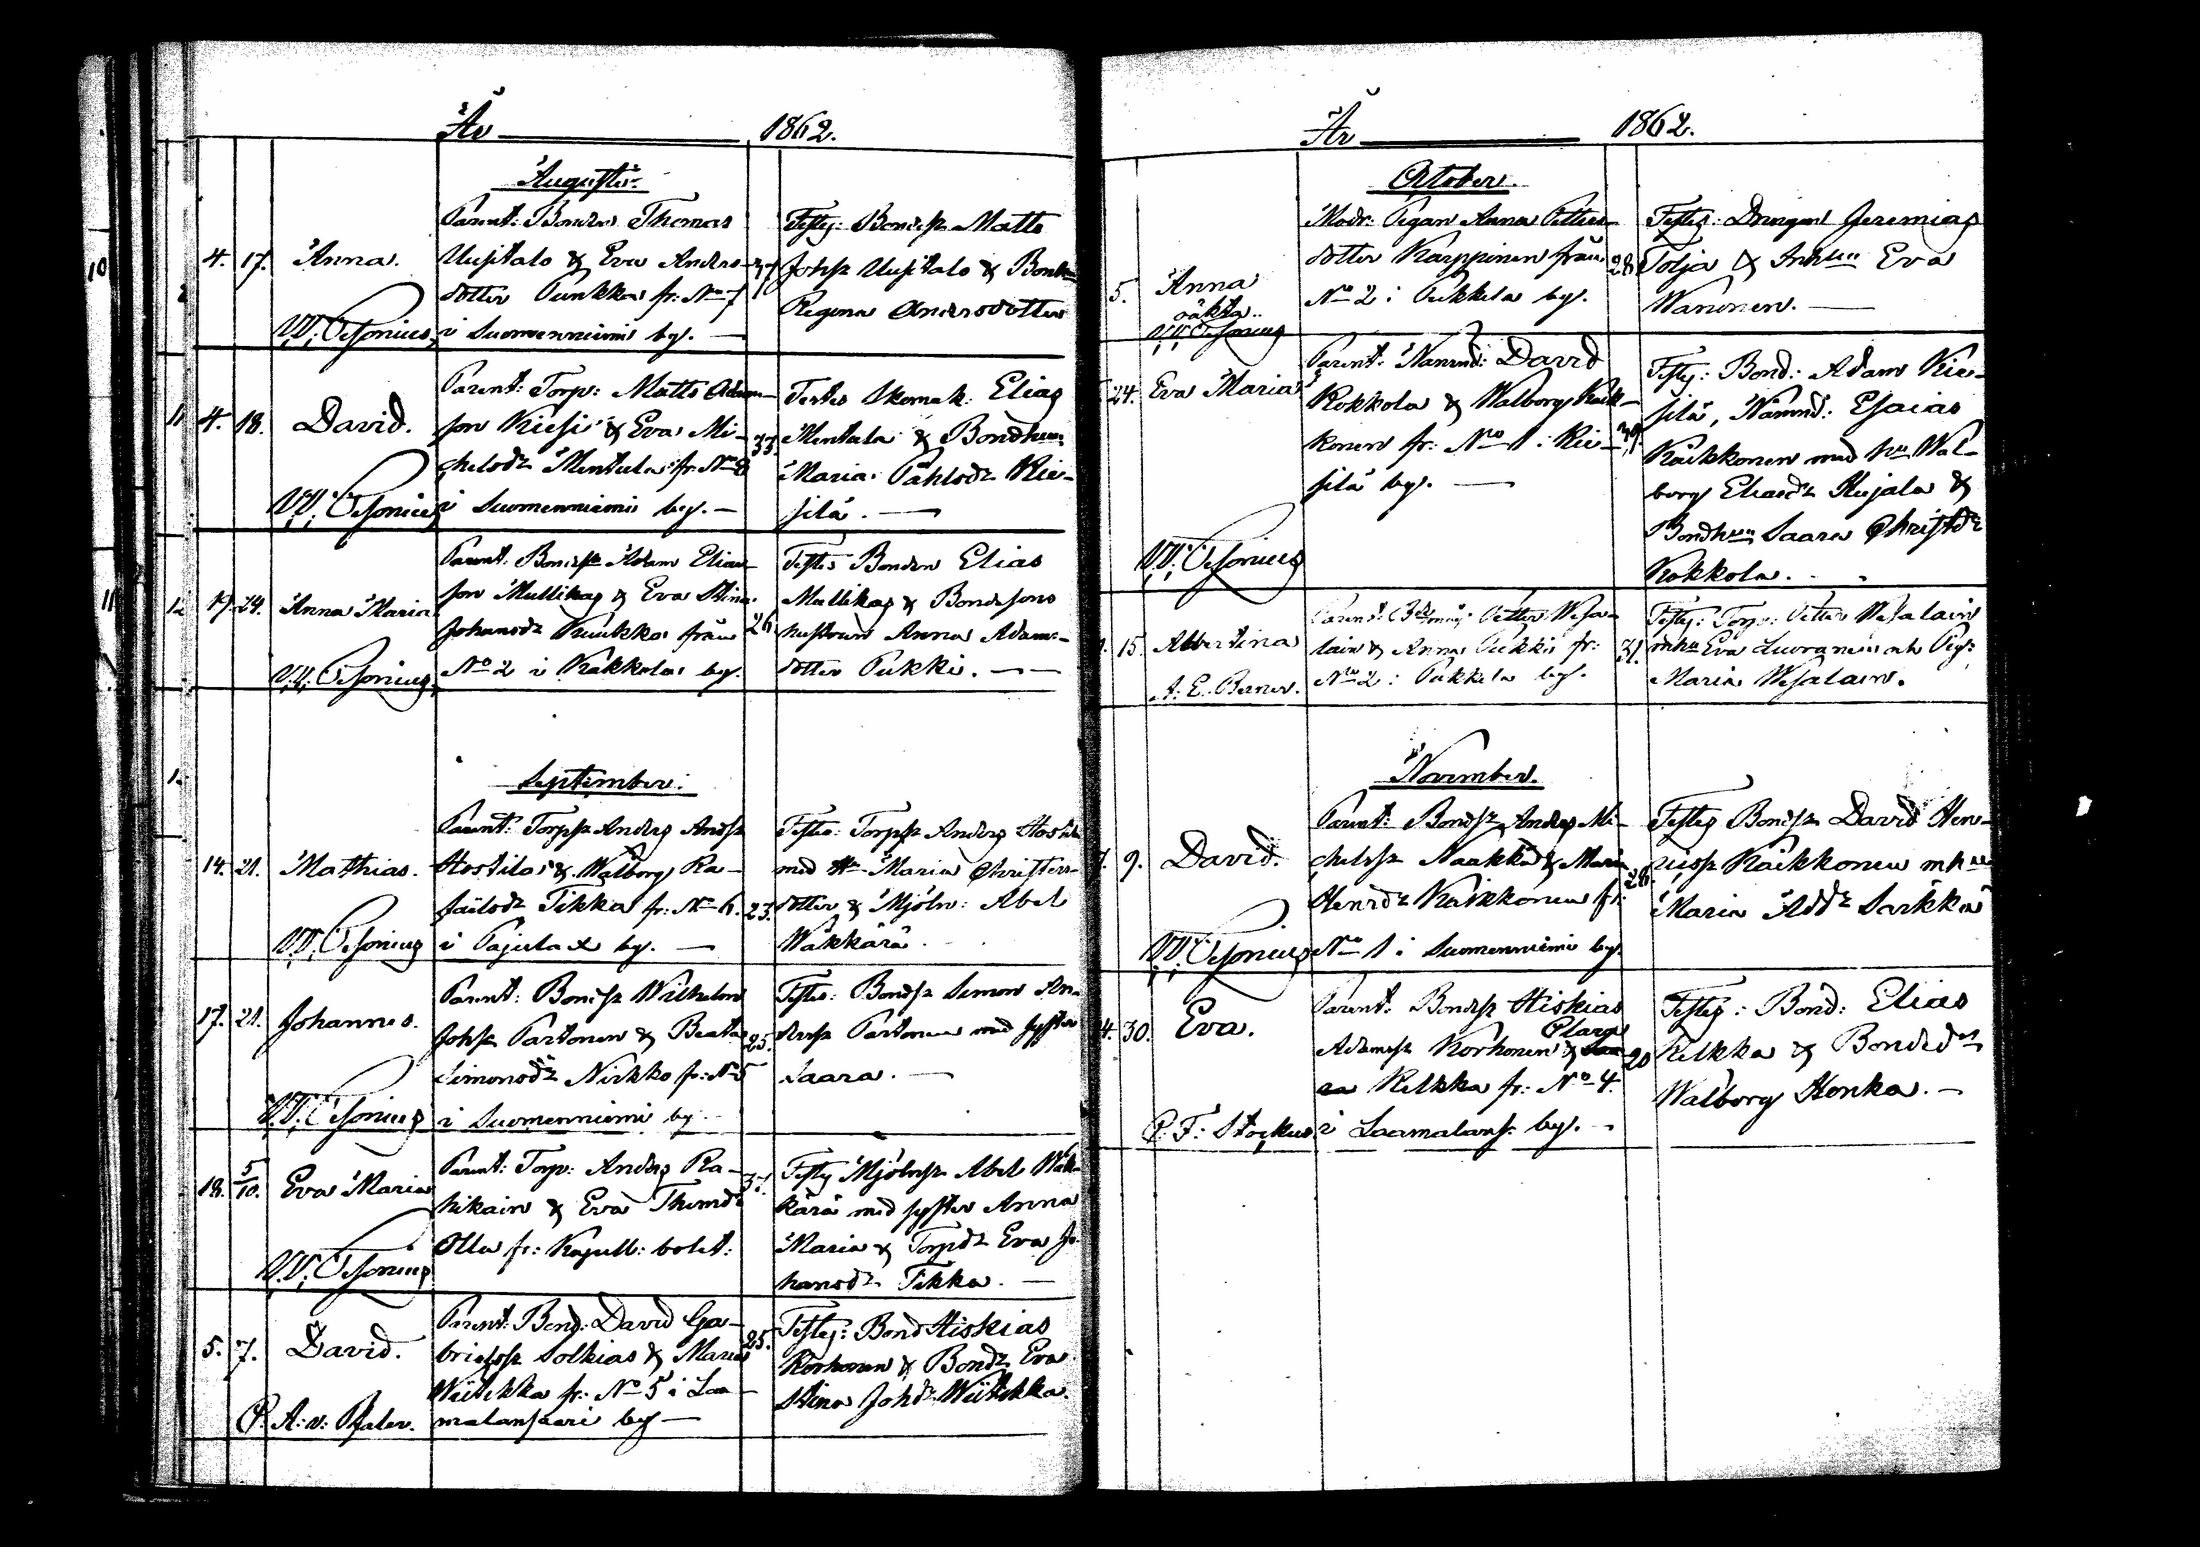 År 1862.
Augusti.
4. 17. Anna.
V. V. Cesonius
Parent: Bonden Thomas
Uusitalo & Eva Anders-
dotter Punkka fr: No 7
i Suomenniemi by. —
37
Testes: Bondes. Matts
Johss Uusitalo & Bond
Regina Andersdotter
4. 18. David.
Parent: Torp: Matts Adam-
son Kiesi & Eva Mi-
chelsdr Mentula fr: No 8
i Suomenniemi by. —
33.
Testes Skomak: Elias
Mentula & Bondhun
Maria Påhlsdr Kie-
silä. —
19. 24. Anna Maria
Parent: Bondess Adam Elias-
son Mullikas & Eva Stina
Johansdr Kuukka från
No 2 i Kakkola by.
26.
Testes Bonden Elias
Mullikas & Bondesons
hustrun Anna Adams-
dotter Pukki. — —
September.
14. 21. Mathias.
Parent: Torpss Anders Andss
Hostila & Walborg Ra-
failsdr Tikka fr: No 6.
i Pajula by. —
23.
Testes: Torpss Anders Hostila
med Hu Maria Christers-
dotter & Mjöln: Abel
Wäkkärä
17. 21. Johannes.
Parent: Bondss Wilhelm
Johss Partonen & Beata
Simonsdr Nirkko fr: No 5
i Suomenniemi by.
25.
Testes: Bondss Simon An-
derss Partonen med syster
Saara. —
18. 5/10. Eva Maria
Parent: Torp: Anders Ra-
hikain & Eva Thomdr
Olla fr: Kapell: bolet:
37.
Testes Mjölnss Abel Wäk-
kärä med syster Anna
Maria & Torpdr Eva Jo-
hansdr Tikka. —
5. 7. David.
Parent: Bond: David Ga-
brielss Solkias & Maria
Wiitikka fr: No 5 i Laa-
malansaari by —
25.
Testes: Bond Hiskias
Korhonen & Bondr Eva
Stina Johdr Wiitikka.
År 1862.
October.
5. Anna
oäkta.
Modr: Pigan Anna Petters-
dotter Karppinen från
No 2 i Pukkela by.
28
Testes: Drengen Jeremias
Tolja & Eva
Wanonen. —
24. Eva Maria
Parent: Nämnd: David
Kokkola & Walborg Räik-
konen fr: No 1 i Kie-
silä by. —
39.
Testes: Bond: Adam Kie-
silä, Nämnd: Esaias
Räikkonen med hu Wal-
borg Eliasdr Kujala &
Bondhun Saara Christdr
Kokkola.
15. Albertina
A. E. Berner.
Petter Wesa-
lain & Anna Pukki fr:
No 2 i Pukkela by.
31.
Testes: Torp: Petter Wesalain
mhu Eva Luoranen och Pig:
Maria Wesalain.
November.
9. David.
Parent: Bondss Anders Mi-
chelss Naakka & Maria
Henrdr Räikkonen fr:
No 1 i Suomenniemi by.
28.
Testes Bondss David Hen-
ricss Räikkonen mhu
Maria Addr Särkkä
4. 30. Eva.
Parent: Bondss Hiskias
Clara
Adamss Korhonen &
Kelkka fr: No 4.
i Laamalans. by. —
20
Testes: Bond: Elias
Kelkka & Bondedr
Walborg Honka. —